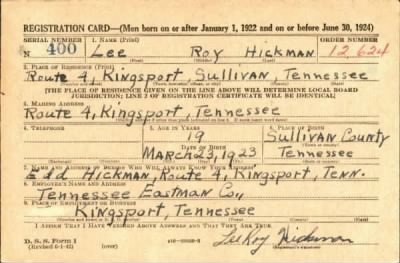 REGISTRATION CARD—(Men born on or after January 1, 1922 and on or before June 30, 1924)
SERIAL NUMBER 1. NAME (Print) ORDER NUMBER
N 400 Lee Roy Hickman 12,624
(First) (Middle) (Last)
2. PLACE OF RESIDENCE (Print)
Route 4, Kingsport Sullivan, Tennessee
[THE PLACE OF RESIDENCE GIVEN ON THE LINE ABOVE WILL DETERMINE LOCAL BOARD
JURISDICTION; LINE 2 OF REGISTRATION CERTIFICATE WILL BE IDENTICAL]
3. MAILING ADDRESS
Route 4, Kingsport, Tennessee
[Mailing address if other than place indicated on line 2. If same insert word same]
4. TELEPHONE 5. AGE IN YEARS 6. PLACE OF BIRTH
19 Sullivan County
DATE OF BIRTH (Town or county)
March 23, 1923 Tennessee
(Exchange) (Number) (Mo.) (Day) (Yr.) (State or country)
7. NAME AND ADDRESS OF PERSON WHO WILL ALWAYS KNOW YOUR ADDRESS
Edd Hickman, Route 4, Kingsport, Tenn.
8. EMPLOYER'S NAME AND ADDRESS
Tennessee Eastman Co,
9. PLACE OF EMPLOYMENT OR BUSINESS
Kingsport, Tennessee
I AFFIRM THAT I HAVE VERIFIED ABOVE ANSWERS AND THAT THEY ARE TRUE.
D. S. S. Form 1
(Revised 6-1-42) (over) LeeRoy Hickman